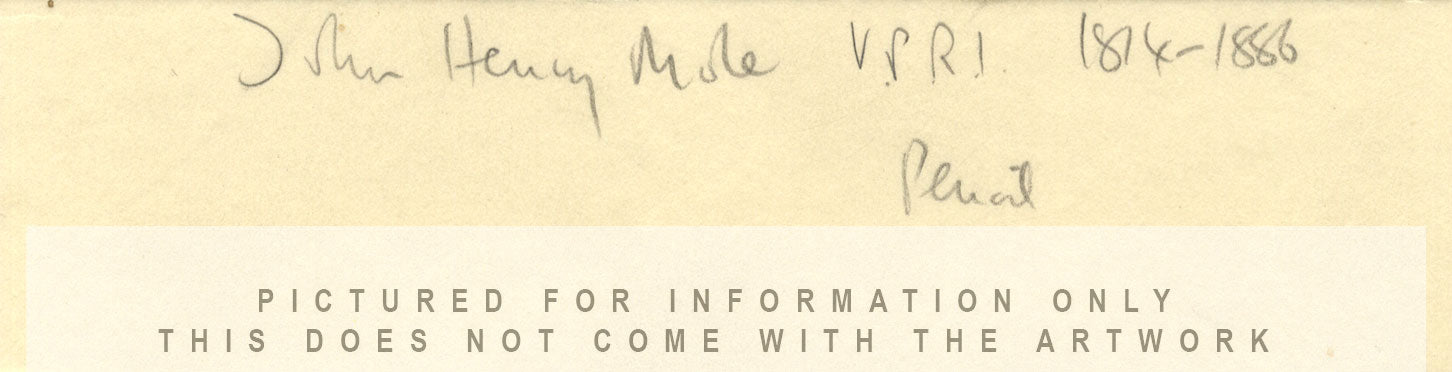 John Henry Mole V.P.R.I. 1814-1886
Pencil
PICTURED FOR INFORMATION ONLY
THIS DOES NOT COME WITH THE ARTWORK